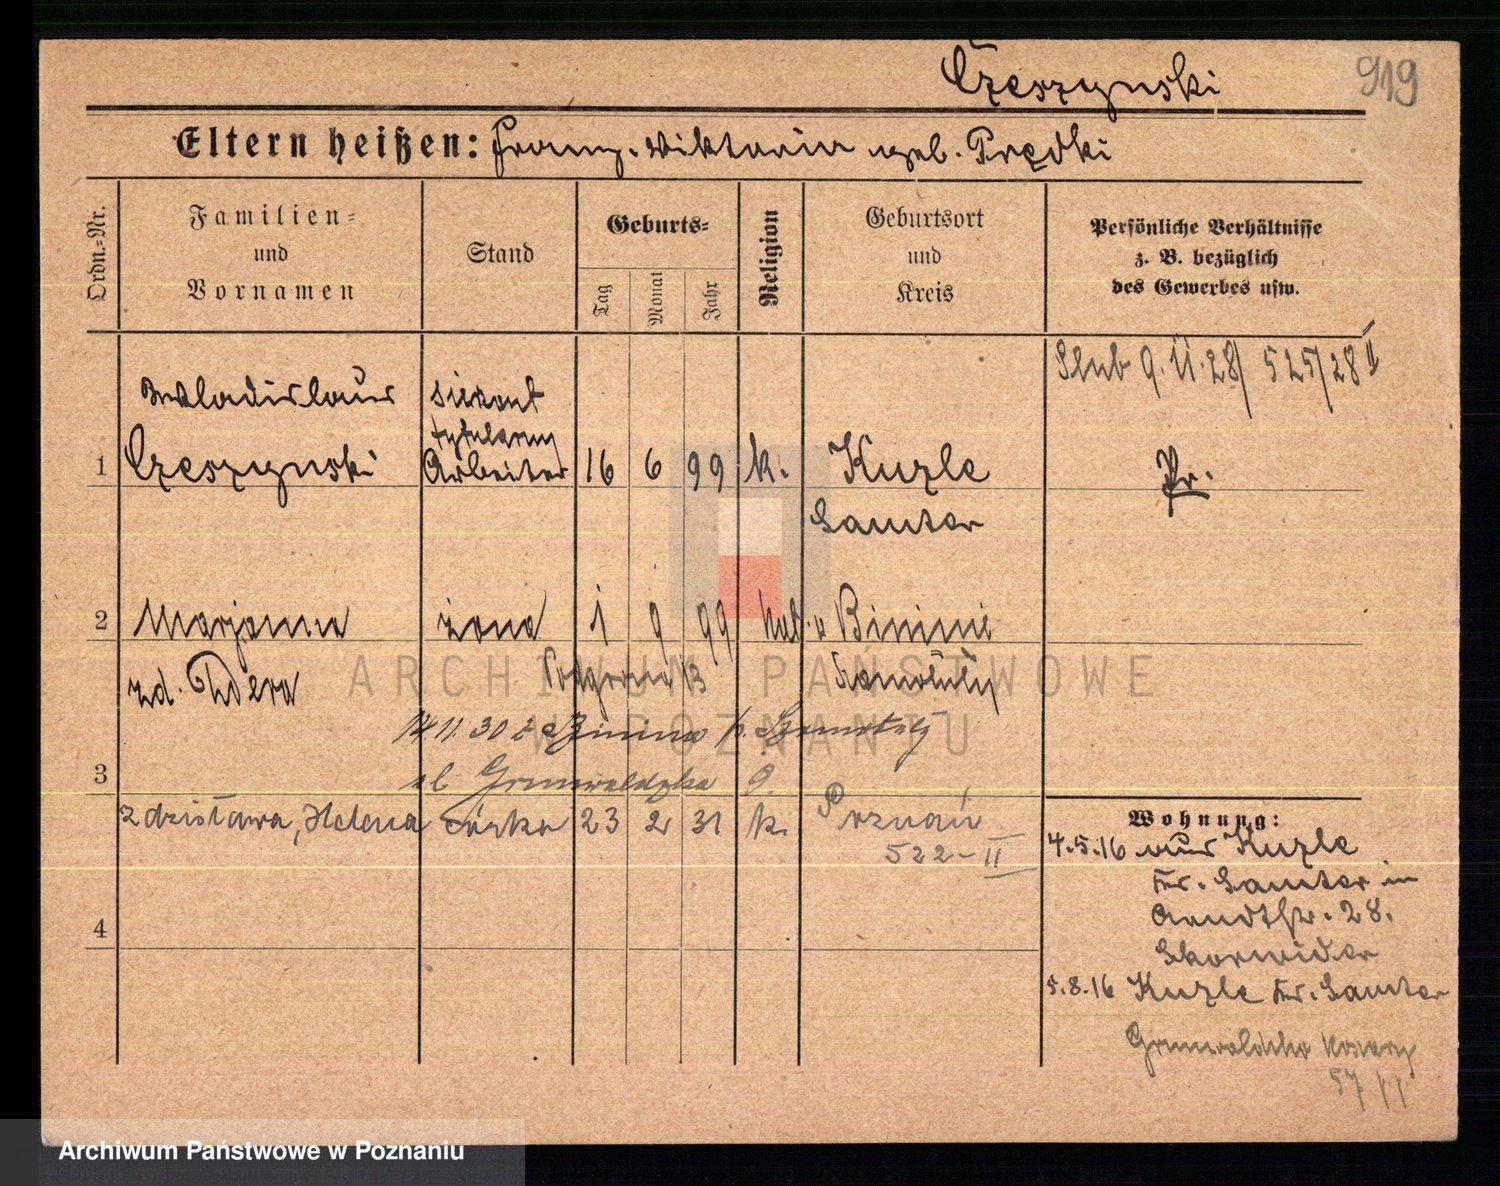 Czeszynski
919
Eltern heißen: Franz. Wiktoria geb. Prędki
Ordn.-Nr.
Familien-
und
Vornamen
Stand
Geburts-
Tag
Monat
Jahr
Religion
Geburtsort
und
Kreis
Persönliche Verhältnisse
z. B. bezüglich
des Gewerbes usw.
Ślub 9.11.28/ 525/28 II
Wladislaus
Czeszynski
Arbeiter
1
16 6 99 k.
Kuzle
Samter
Pr.
2
Marjanna
żona
1 9 99 kat.
Binini
zd. Zdera
Szamotuły
14.11.30 z Binina p. Szamotuły
3
ul. Grunwaldzka 9.
Zdzisława, Helena córka 23 2 31 k. Poznań
522-II
4
Wohnung:
4.5.16 aus Kuzle
Kr. Samter in
Arndtstr. 28.
5.8.16 Kuzle Kr. Samter
Grunwaldzka koszary
57
ARCHIWUM PAŃSTWOWE
W POZNANIU
Archiwum Państwowe w Poznaniu